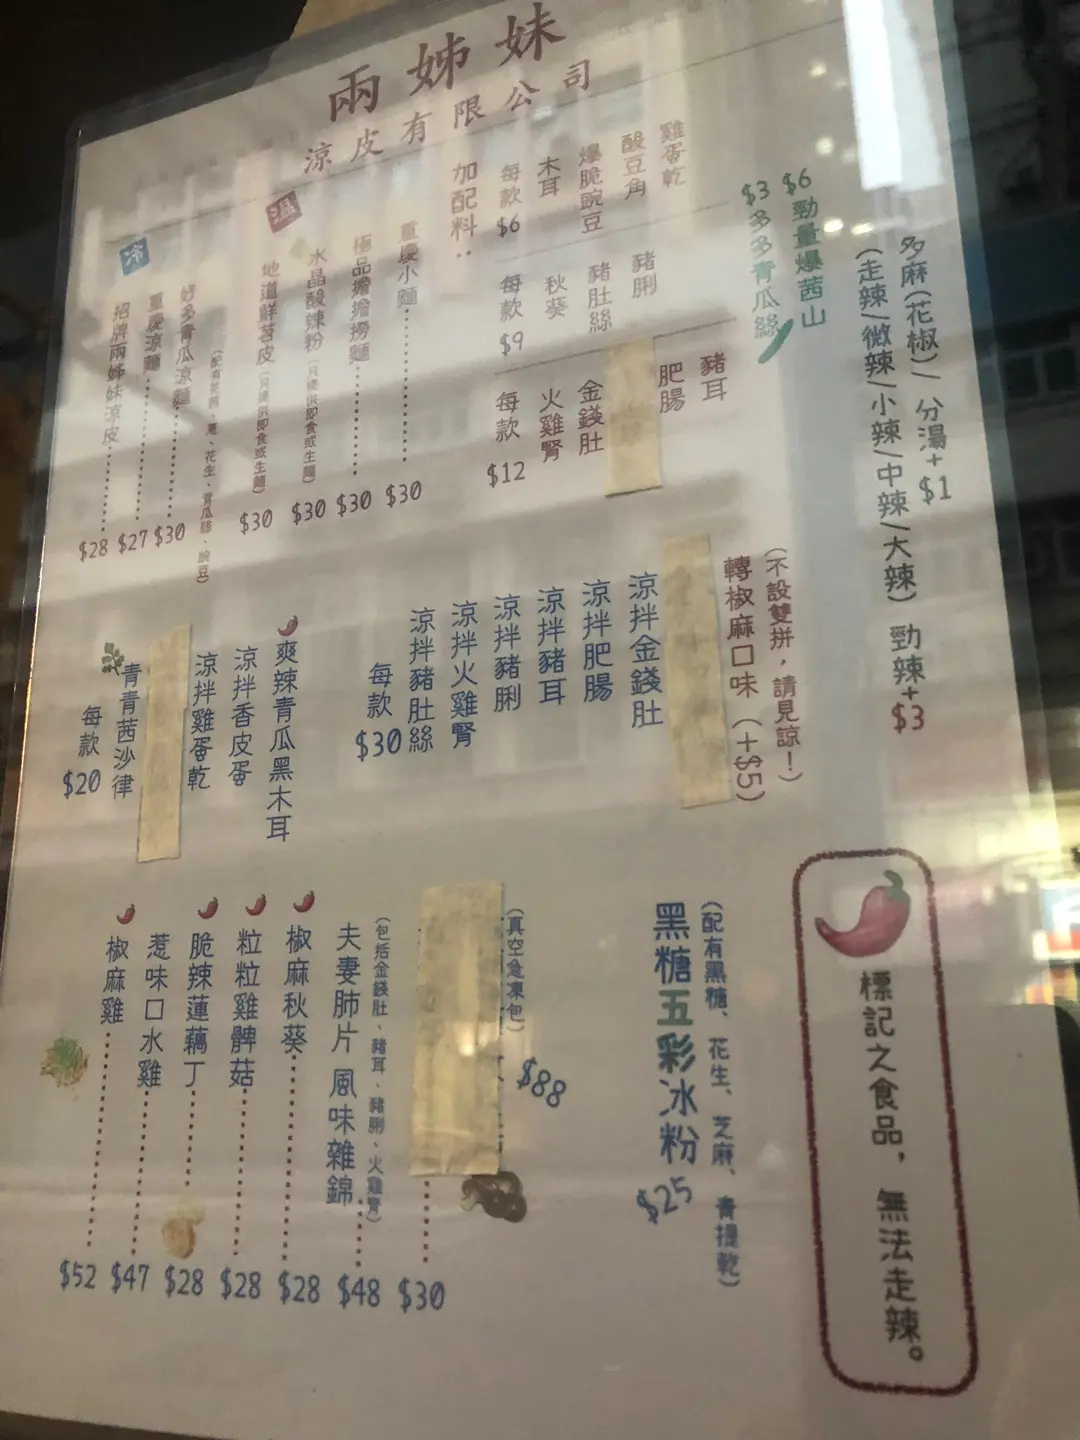 兩姊妹
涼皮有限公司
多麻(花椒)/分湯+$1
(走辣/微辣/小辣/中辣/大辣) 勁辣+$3
$6 勁量爆茜山
$3 多多青瓜絲
加配料:
雞蛋乾
酸豆角
爆脆豌豆
木耳
每款$6
豬脷
豬肚絲
秋葵
每款$9
豬耳
肥腸
金錢肚
火雞腎
每款$12
溫
重慶小麵 $30
極品擔擔撈麵 $30
水晶酸辣粉(只提供即食或生麵) $30
地道鮮苕皮(只提供即食或生麵) $30
冷
(配有花生、青瓜絲、豌豆)
好多青瓜涼麵 $30
重慶涼麵 $27
招牌兩姊妹涼皮 $28
(不設雙拼,請見諒!)
轉椒麻口味(+$5)
涼拌金錢肚
涼拌肥腸
涼拌豬耳
涼拌豬脷
涼拌火雞腎
涼拌豬肚絲
每款$30
爽辣青瓜黑木耳
涼拌香皮蛋
涼拌雞蛋乾
青青茜沙律
每款$20
標記之食品,無法走辣。
(配有黑糖、花生、芝麻、青提乾)
黑糖五彩冰粉$25
(真空急凍包)
$88
$30
(包括金錢肚、豬耳、豬脷、火雞腎)
夫妻肺片 風味雜錦 $48
椒麻秋葵 $28
粒粒雞髀菇 $28
脆辣蓮藕丁 $28
惹味口水雞 $47
椒麻雞 $52